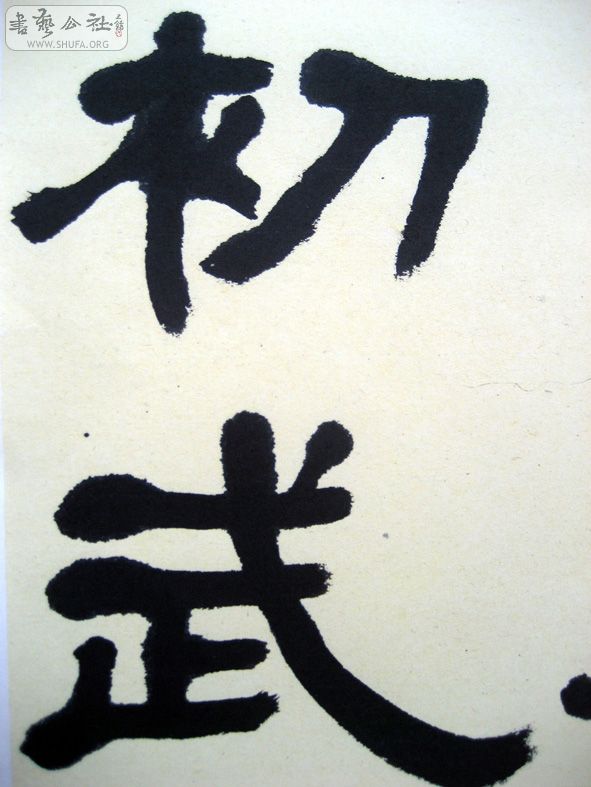 書藝公社
WWW.SHUFA.ORG
初
武